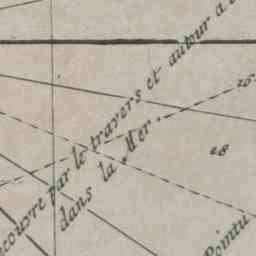 ecouvre par le travers et autour a
dans la Mer.
20
28
Pointu